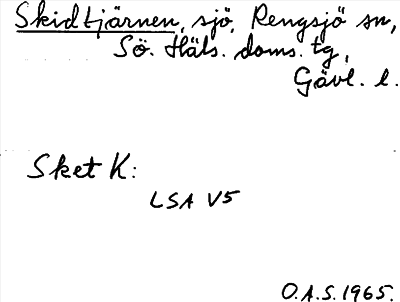 Skidtjärnen, sjö, Rengsjö sn,
Sö. Häls. doms. tg,
Gävl. l.
Sket K:
LSA V5
O.A.S. 1965.